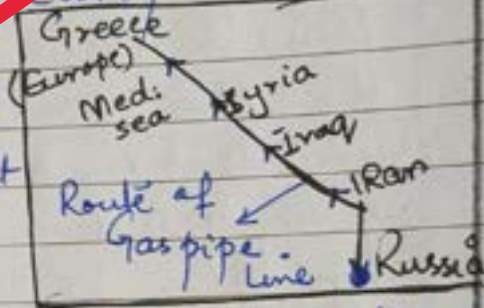 Greece
(Europe)
Med:
sea
Syria
Iraq
IRan
Route of
Gas pipe
Line
Russia